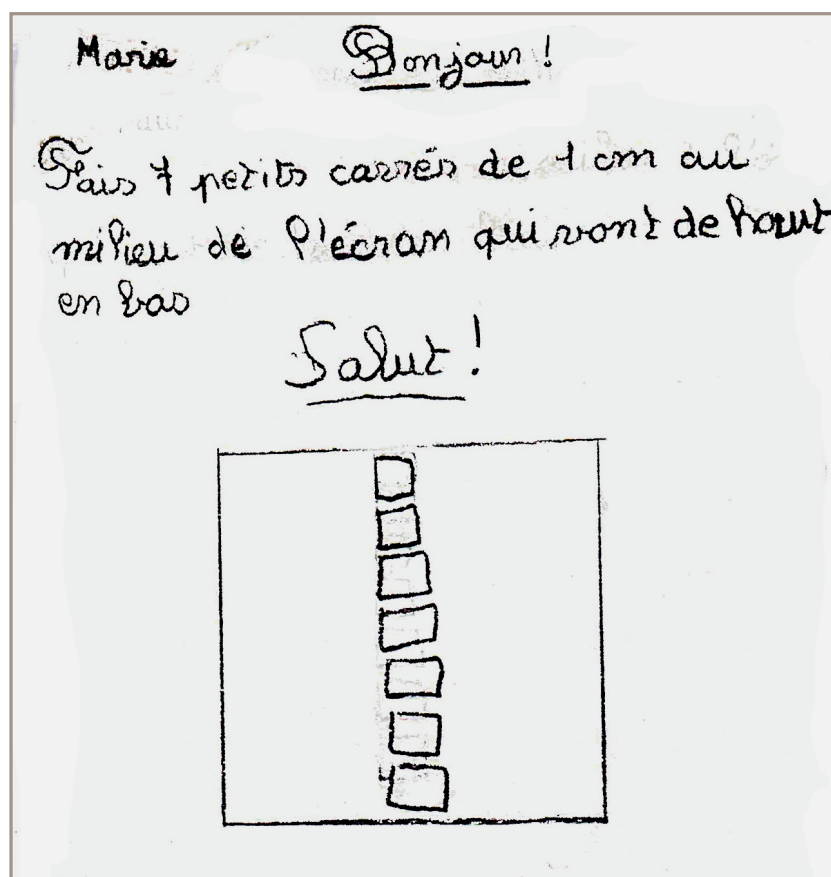 Marie Bonjour !
Fais 7 petits carrés de 1 cm au
milieu de l'écran qui vont de haut
en bas
Salut !